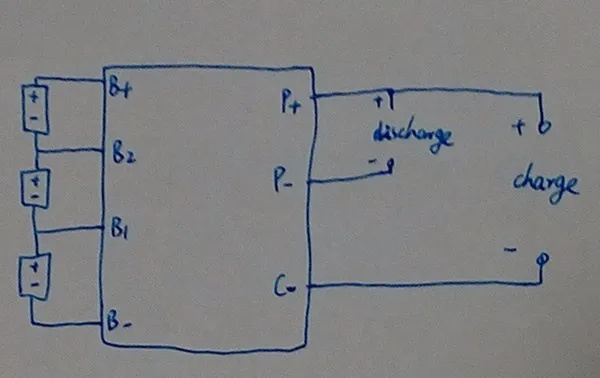 B+
P+
+
-
+
-
discharge
+
-
charge
B2
+
-
P-
B1
+
-
C-
B-